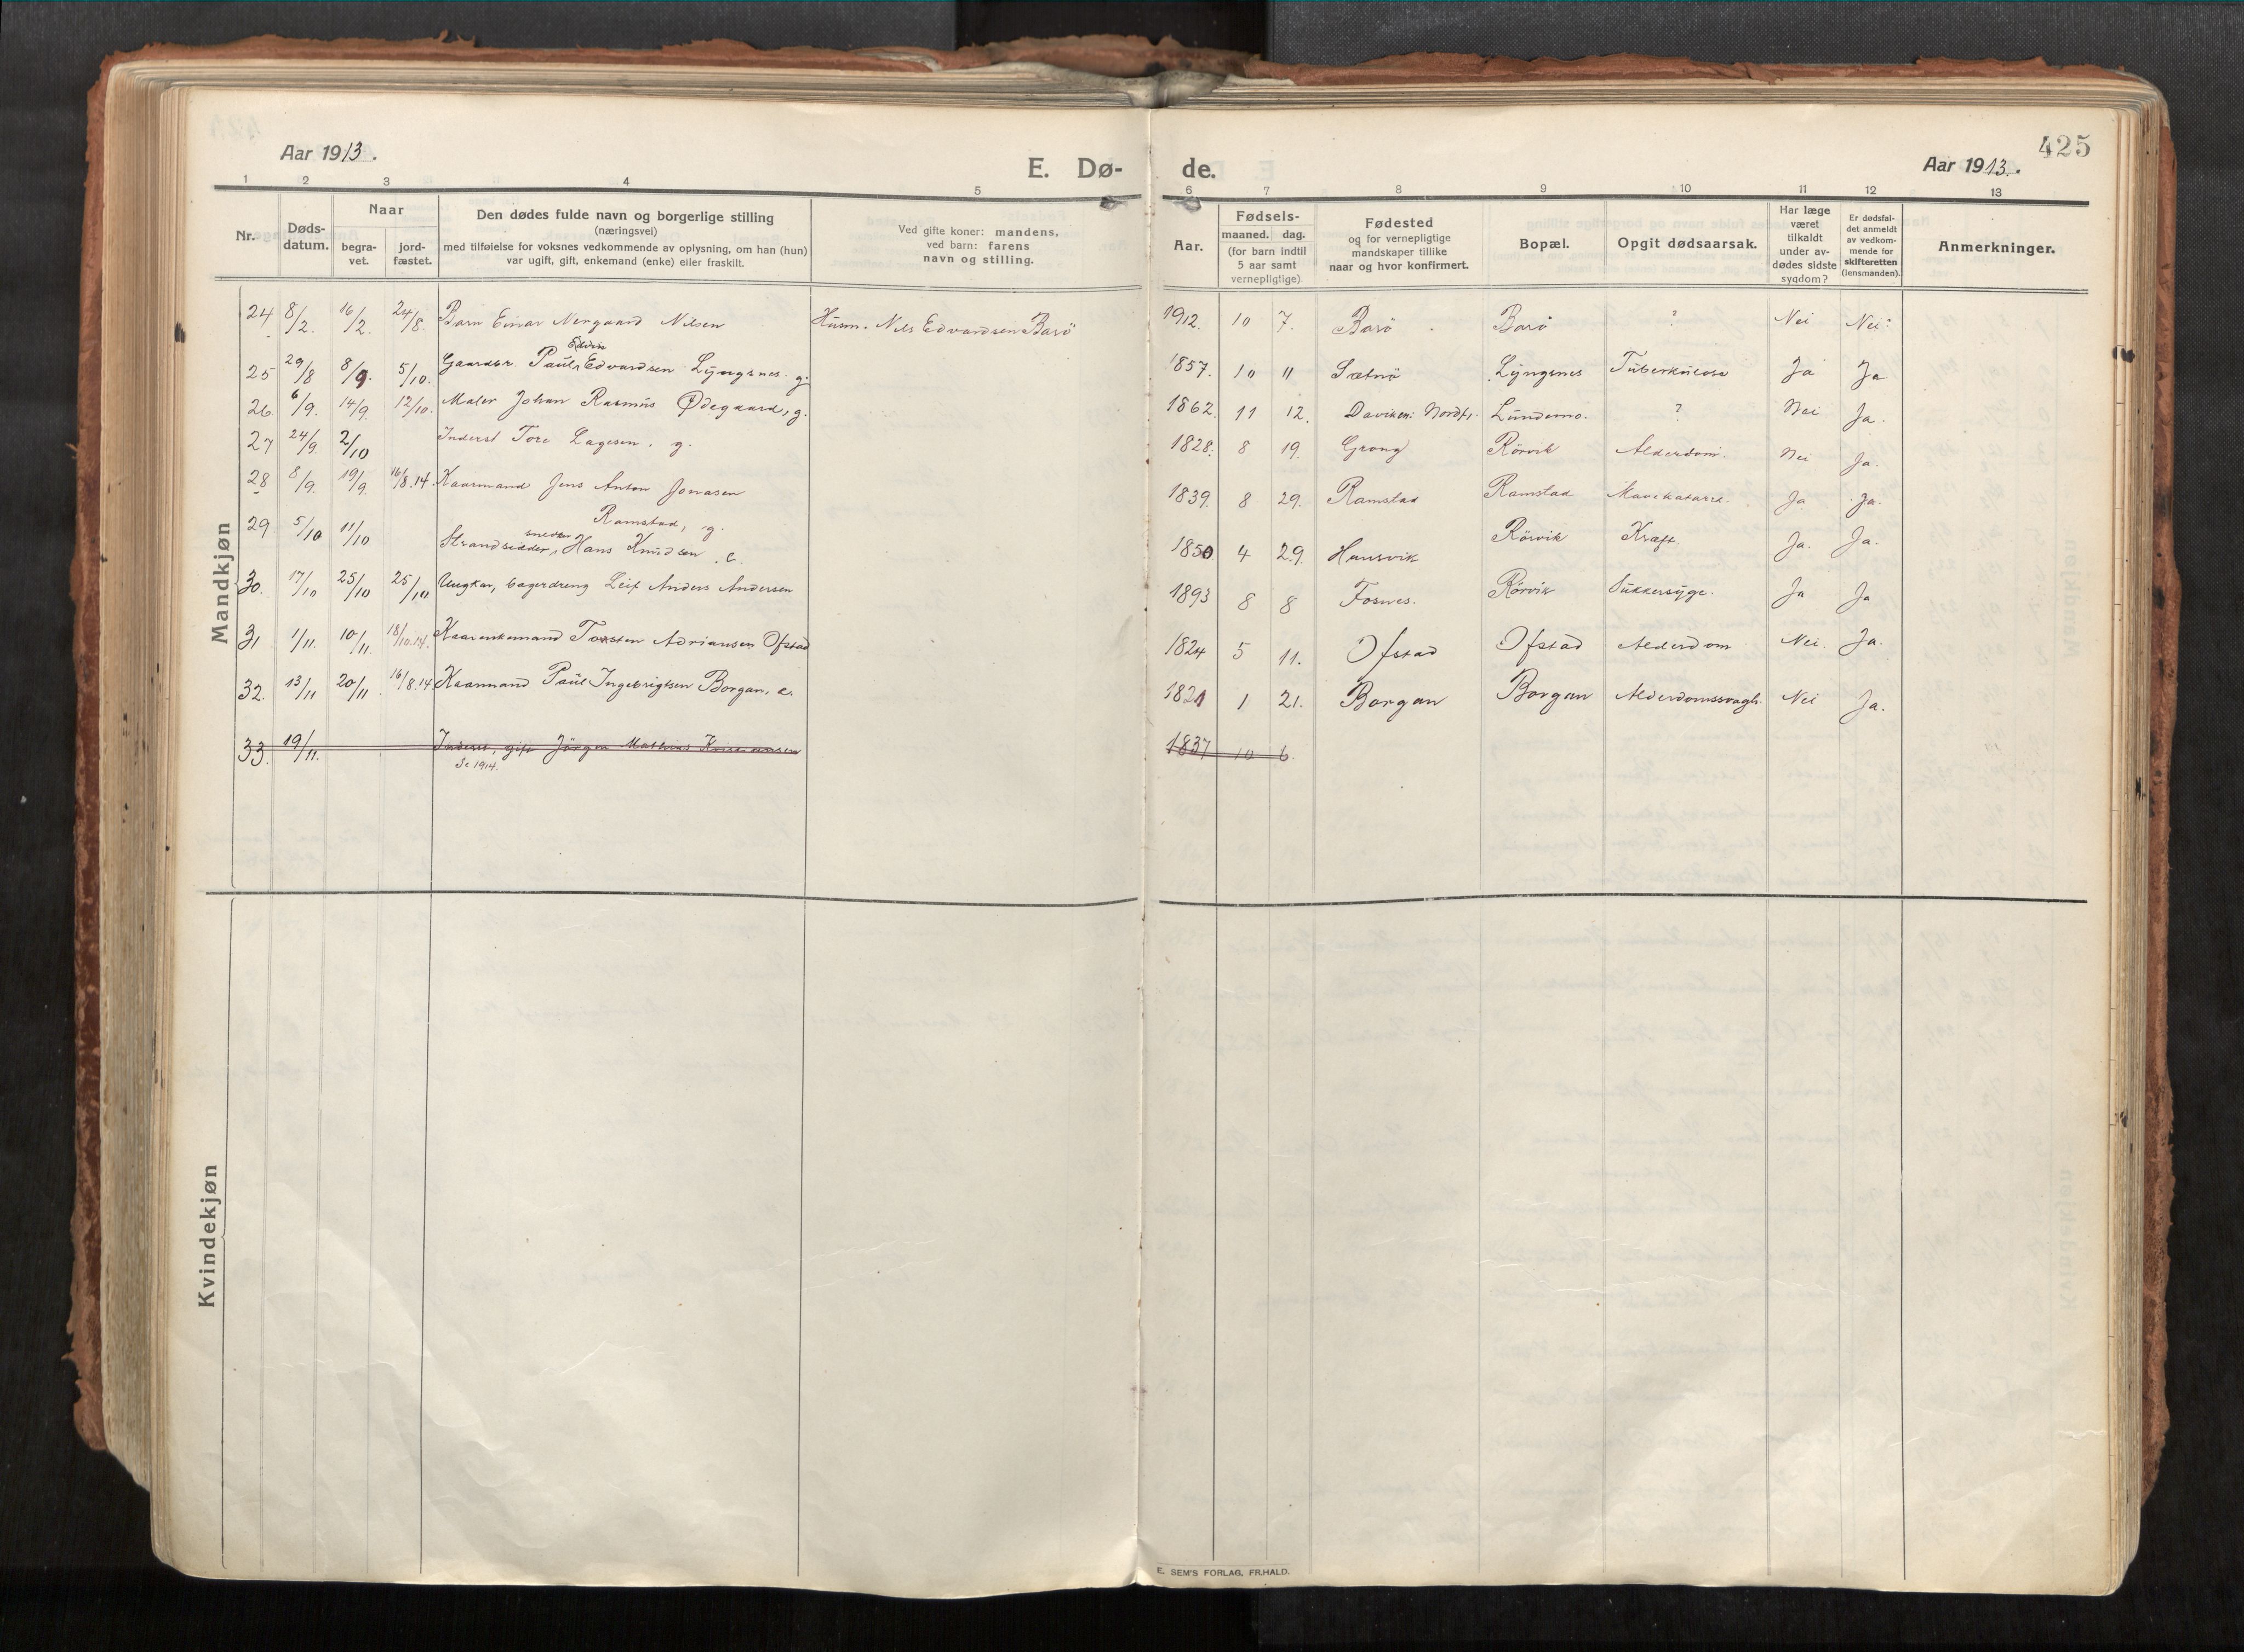 425
Aar 1913.
E. Dø-
de.
Aar 1913.
1 2 3 4 5 6 7 8 9 10 11 12 13
Nr.
Døds-
datum.
Naar
begra-
vet.
jord-
fæstet.
Den dødes fulde navn og borgerlige stilling
(næringsvei)
med tilføielse for voksnes vedkommende av oplysning, om han (hun)
var ugift, gift, enkemand (enke) eller fraskilt.
Ved gifte koner: mandens,
ved barn: farens
navn og stilling.
Aar.
Fødsels-
maaned. dag.
(for barn indtil
5 aar samt
vernepligtige)
Fødested
og for vernepligtige
mandskaper tillike
naar og hvor konfirmert.
Bopæl.
Opgit dødsaarsak.
Har læge
været
tilkaldt
under av-
dødes sidste
sygdom?
Er dødsfal-
det anmeldt
av vedkom-
mende for
skifteretten
(lensmanden).
Anmerkninger.
Mandkjøn
24 8/2. 16/2. 24/8. Barn Einar Nergaard Nilsen Husm. Nils Edvardsen Barö 1912. 10 7. Barö Barö ? Nei Nei.
Edvin
25 29/8 8/9. 5/10. Gaardbr Paul Edvardsen Lyngsnes. g. 1857. 10 11 Sætnö Lyngsnes Tuberkulose Ja Ja
26 6/9. 14/9. 12/10. Maler Johan Rasmus Ødegaard, g. 1862. 11 12. Daviken: Nordfj. Lundemo. ? Nei Ja.
27 24/9. 2/10 Inderst Tore Lagesen. g. 1828. 8 19. Grong Rörvik Alderdom. Nei Ja.
28 8/9. 19/9. 16/8.14. Kaarmand Jens Anton Jonasen 1839. 8 29. Ramstad Ramstad Mavekatarrh. Ja Ja.
Ramstad, g.
sneder
29 5/10 11/10 Strandsidder, Hans Knudsen. e. 1850 4 29. Hansvik Rörvik Kræft Ja. Ja.
30. 17/10 25/10 25/10 Ungkar, bagerdreng Leif Anders Andersen 1893 8 8 Fosnes. Rörvik Sukkersyge. Ja Ja
31 1/11. 10/11. 18/10.14. Kaarenkemand Torsten Adriansen Ofstad 1824 5 11. Ofstad Ofstad Alderdom Nei. Ja.
32. 13/11 20/11 16/8.14 Kaarmand Paul Ingebrigtsen Borgan, e. 1821 1 21. Borgan Borgan Alderdomssvagh. Nei Ja.
33. 19/11. Inderst, gift Jörgen Mathias Kristiansen 1837 10 6.
Se 1914.
Kvindekjøn
E. SEM'S FORLAG, FR.HALD.